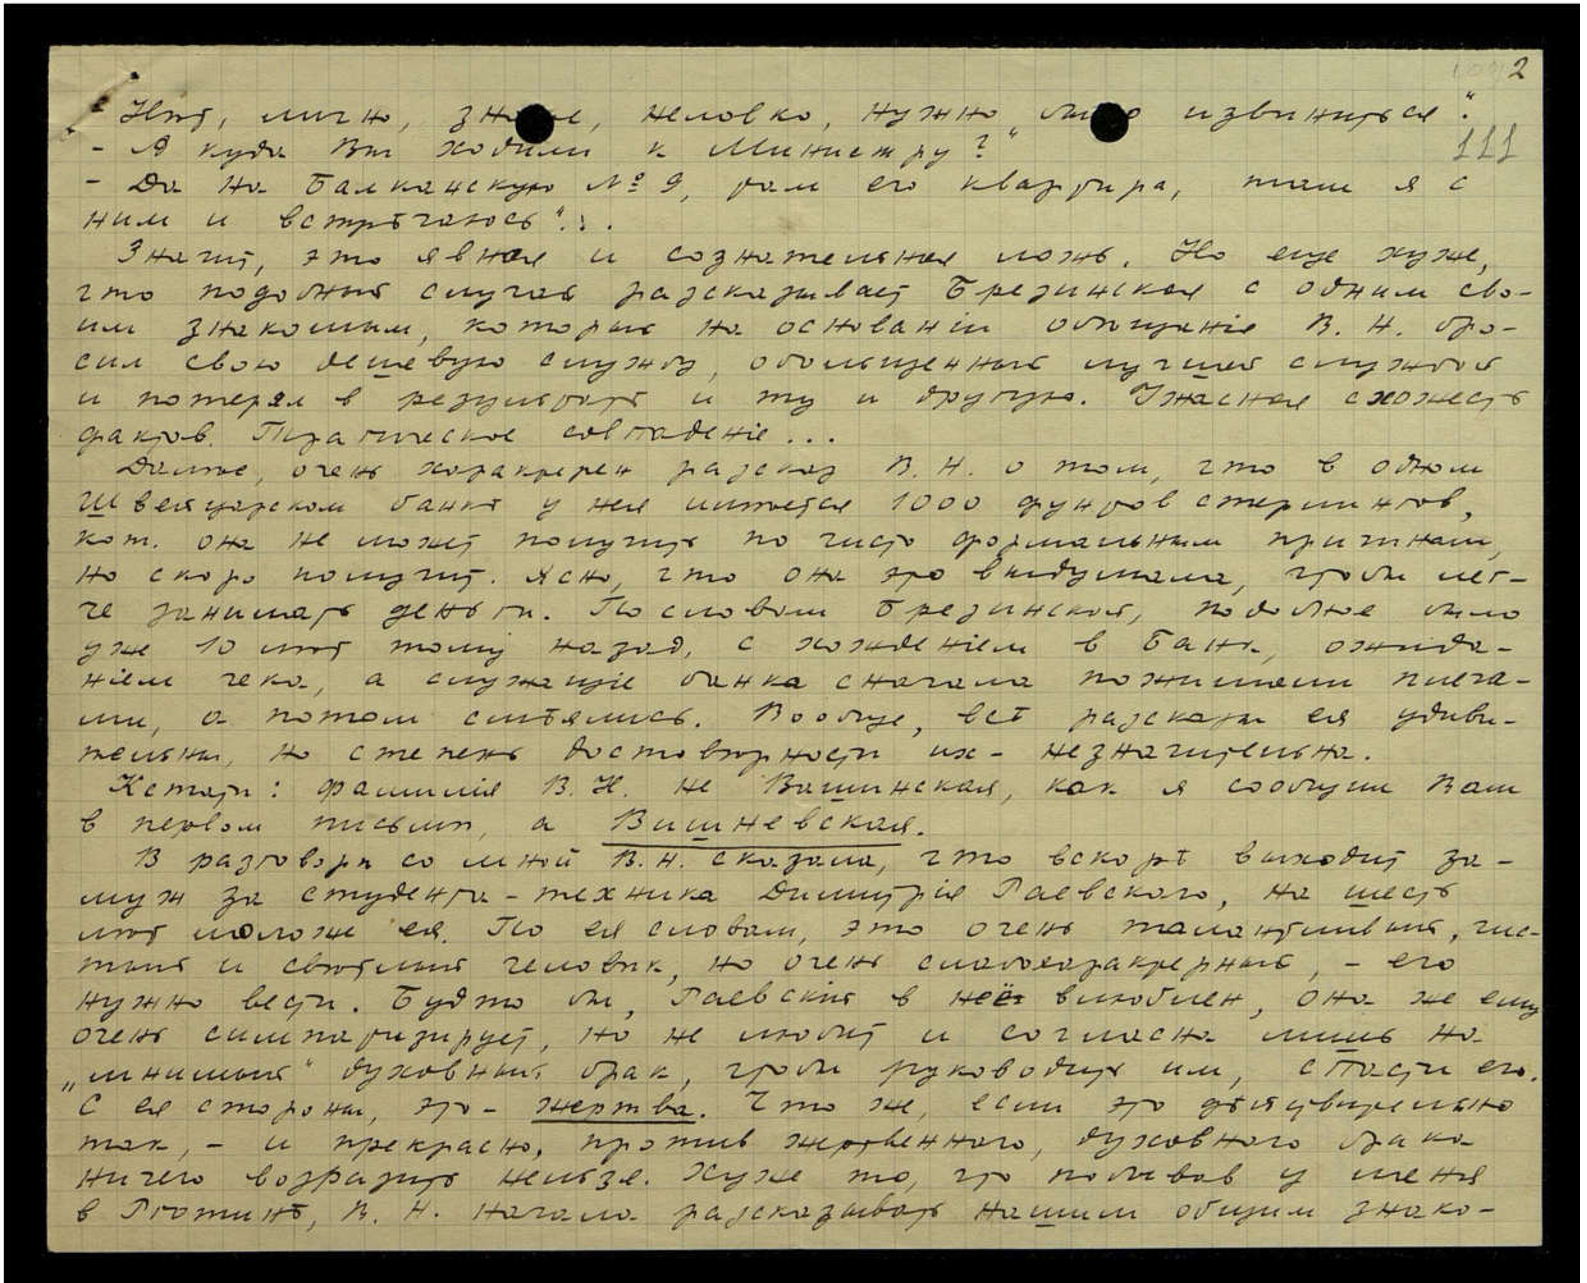 2
- Нѣт, лично, знаете, неловко, нужно было извиниться".
111
- А куда Вы ходили к Министру?"
- Да на Балканскую № 9, там его квартира, там я с
ним и встрѣчаюсь"...
Значит, это явная и сознательная ложь. Но еще хуже,
что подобный случай разсказывает Брезинская с одним сво-
им знакомым, который на основаніи обѣщанія В. Н. бро-
сил свою дешевую службу, обольщенный лучшей службой
и потерял в результатѣ и ту и другую. Ужасная схожесть
фактов. Трагическое совпаденіе...
Далѣе, очень характерен разсказ В. Н. о том, что в одном
Швейцарском банкѣ у нея имѣется 1000 фунтов стерлингов,
кот. она не может получить по чисто формальным причинам,
но скоро получит. Ясно, что она это выдумала, чтобы лег-
че занимать деньги. По словам Брезинской, подобное было
уже 10 лѣт тому назад, с хожденіем в Банк, ожида-
ніем чека, а служащіе банка сначала пожимали плеча-
ми, а потом смѣялись. Вообще, всѣ разсказы ея удиви-
тельны, но степень достовѣрности их - незначительна.
Кстати: фамилія В. Н. не Вашинская, как я сообщил Вам
в первом письмѣ, а Вишневская.
В разговорѣ со мной В. Н. сказала, что вскорѣ выходит за-
муж за студента-техника Димитрія Раевского, на шесть
лѣт моложе ея. По ея словам, это очень талантливый, чис-
тый и свѣтлый человѣк, но очень слабохарактерный, - его
нужно вести. Будто бы, Раевскій в неё влюблен, она же ему
очень симпатизирует, но не любит и согласна лишь на
„мнимый" духовный брак, чтобы руководить им, спасти его.
С ея стороны, это - жертва. Что же, если это дѣйствительно
так, - и прекрасно, против жертвенного, духовного брака
ничего возразить нельзя. Хуже то, что побывав у меня
в В. Н. начала разсказывать нашим общим знако-